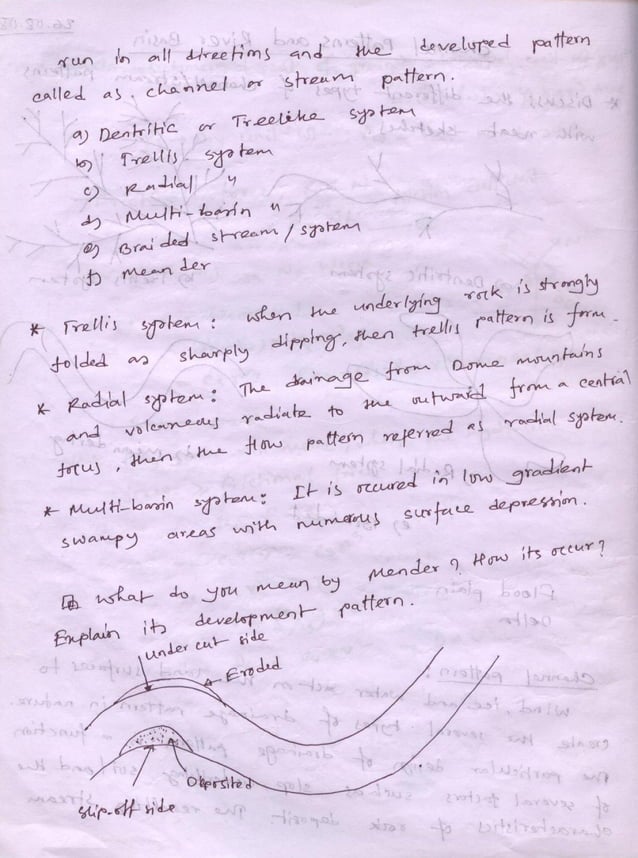 run in all directions and the developed pattern
called as channel or stream pattern.
a) Dentritic or Treelike system
b) Trellis system
c) Radial "
d) Multi-basin "
e) Braided stream/system
f) meander
* Trellis system: when the underlying rock is strongly
folded as sharply dipping, then trellis pattern is form.
* Radial system: The drainage from Dome mountains
and volcaneous radiate to the outward from a central
focus, then the flow pattern referred as radial system.
* Multi-basin system: It is occured in low gradient
swampy areas with numerous surface depression.
what do you mean by Mender? How its occur?
Explain its development pattern.
under cut side
Eroded
Deposited
Slip-off side